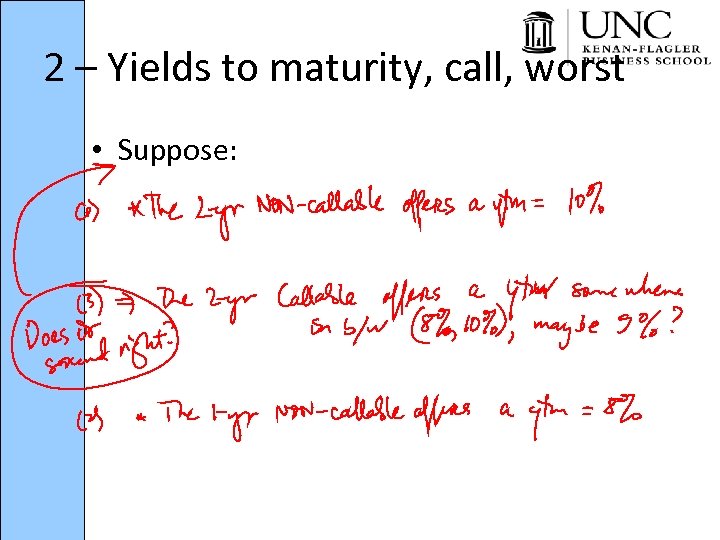 UNC
KENAN-FLAGLER
BUSINESS SCHOOL
2 – Yields to maturity, call, worst
• Suppose:
(1) * The 2-yr NON-callable offers a ytm = 10%
(3) ⇒ The 2-yr Callable offers a ytm somewhere
in b/w (8%, 10%), maybe 9%?
Does it
sound right?
(2) * The 1-yr NON-callable offers a ytm = 8%